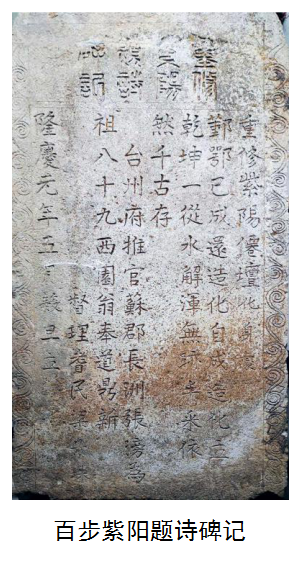 重修
紫陽
題詩
碑記
重修紫陽僊壇
鄞鄂已成還造化自成造化
乾坤一從水解渾無依
然千古存
台州府推官蘇郡長洲張為
祖八十九西園翁奉道鼎新
督理耆民
隆慶元年五月癸丑立
百步紫阳题诗碑记